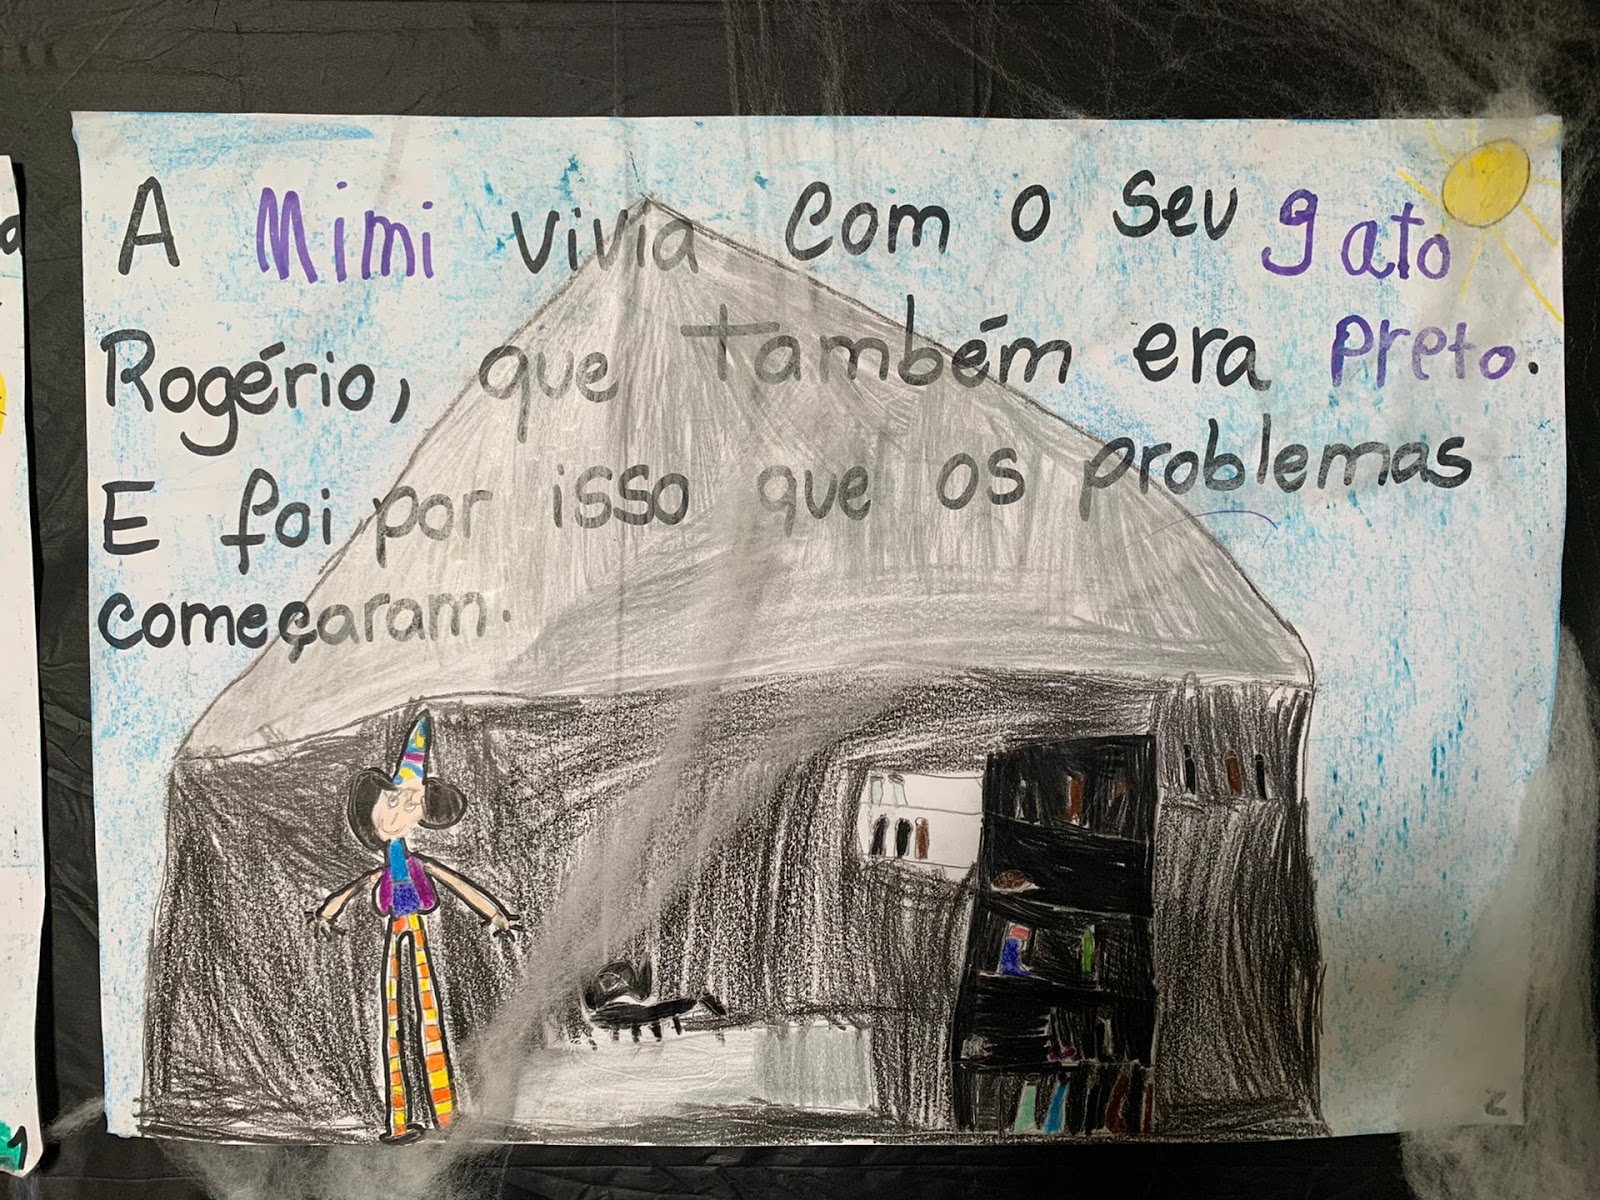 A Mimi vivia com o seu gato
Rogério, que também era preto.
E foi por isso que os problemas
começaram.
2